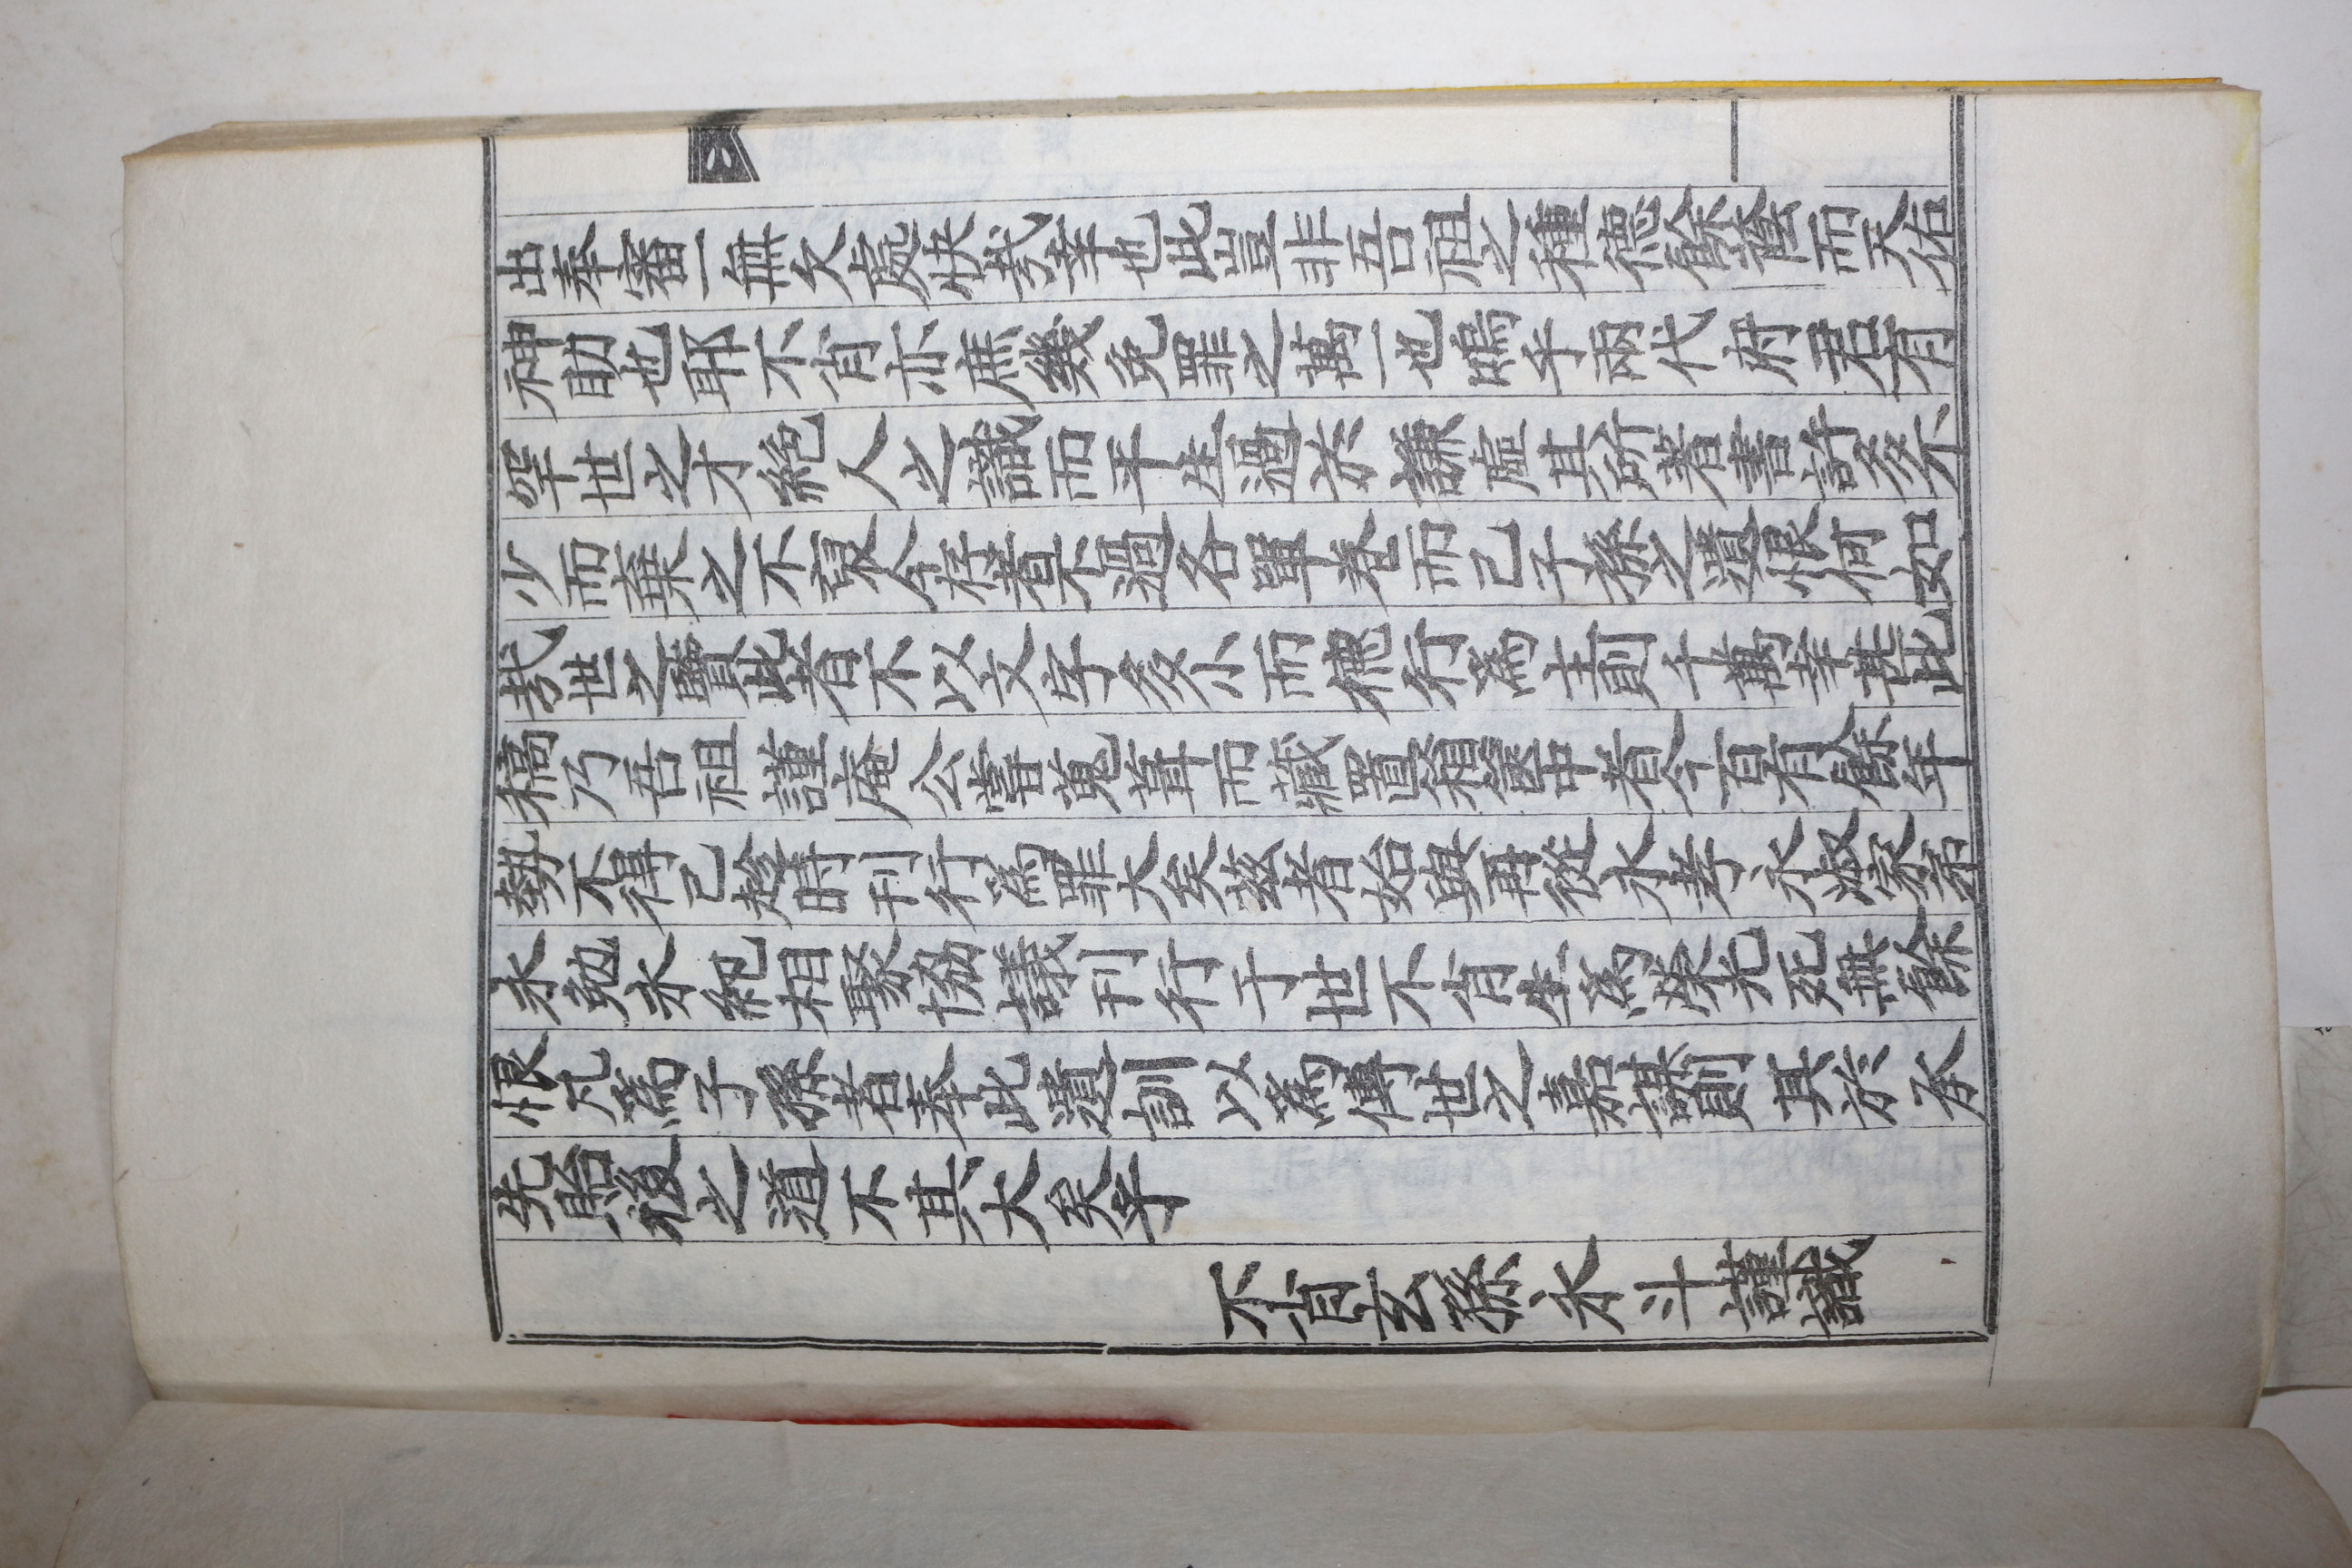 出奉審一無欠處快哉幸也此豈非吾祖之種德餘蔭而天佑
神助也耶不肖亦庶幾免罪之萬一也嗚乎兩代府君有
罕世之才絶人之識而平生過於謙虛其所著書許多不
少而棄之不裒今存者不過各單卷而己子孫之遺恨何如
哉世之覽此者不以文字多小而德行爲主則千萬幸甚此
稿乃吾祖謹庵公嘗蒐葺而藏置箱篋中者今百有餘年
勢不得己趁時刊行爲罪大矣玆者始與再從永孝永淑家弟
永勉永紀相聚協議刊行于世不肖生爲榮光死無餘
恨凡爲子孫者奉此遺訓以爲傳世之嘉謀則其於承
先貽後之道不其大矣乎
不肖玄孫永斗謹識